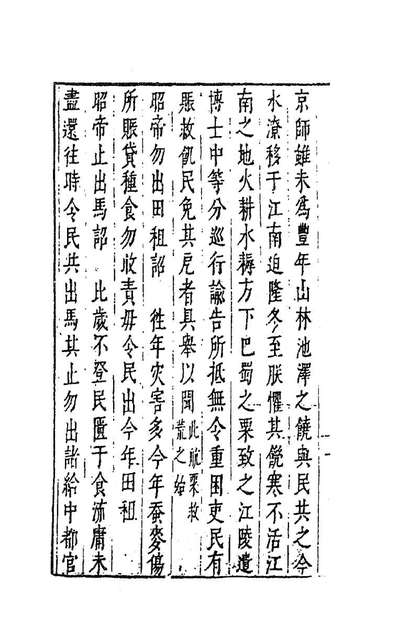 京師雖未爲豐年山林池澤之饒與民共之今
水潦移于江南迫隆冬至朕懼其饑寒不活江
南之地火耕水耨方下巴蜀之粟致之江陵遣
博士中等分巡行諭告所抵無令重困吏民有
賑救飢民免其戹者具舉以聞此敕粟救荒之始
昭帝勿出田租詔　往年灾害多今年蚕麥傷
所賑貸種食勿收責毋令民出今年田租
昭帝止出馬詔　比歲不登民匱于食流庸未
盡還往時令民共出馬其止勿出諸給中都官